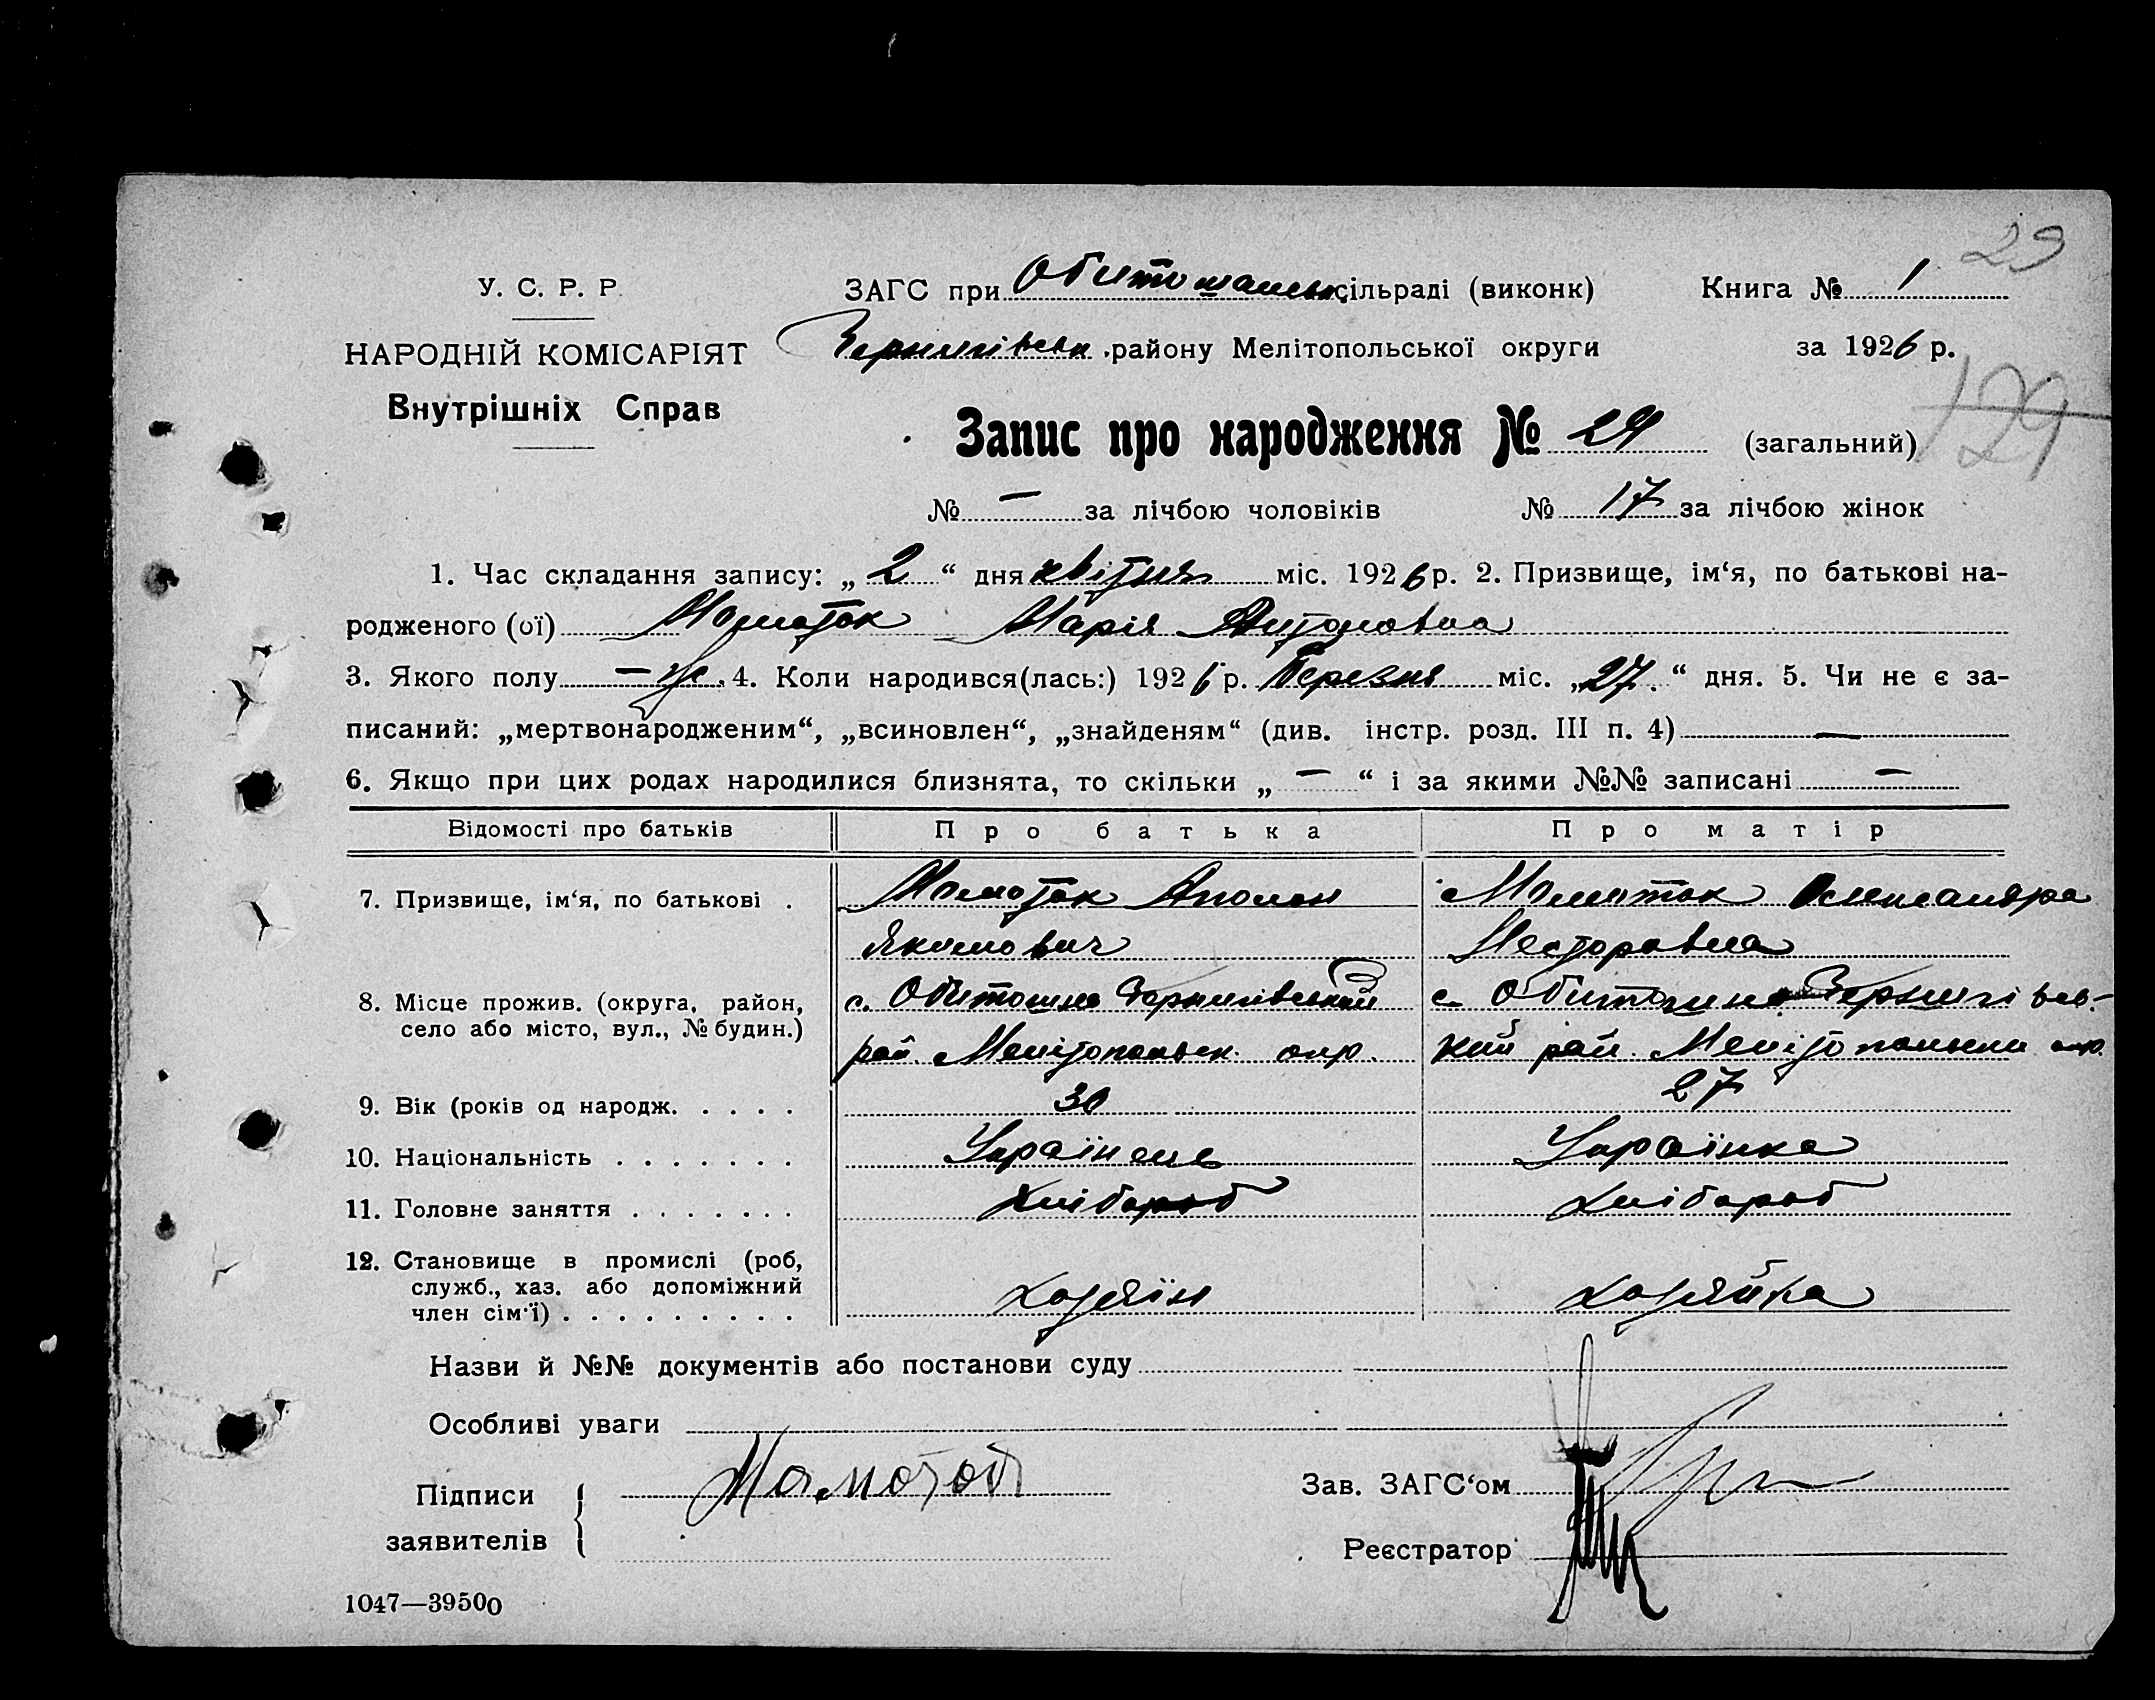 29
У. С. Р. Р. ЗАГС при Обитошанськ. сільраді (виконк) Книга № 1
НАРОДНІЙ КОМІСАРІЯТ району Мелітопольської округи за 1926 р.
Внутрішніх Справ
129
Запис про народження № 29 (загальний)
№ — за лічбою чоловіків № 17 за лічбою жінок
1. Час складання запису: „ 2 “ дня квітня міс. 1926 р. 2. Призвище, ім‘я, по батькові на-
родженого (ої) Маматок Марія
3. Якого полу — ж. 4. Коли народився(лась:) 1926 р. Березня міс. „ 27. “ дня. 5. Чи не є за-
писаний: „мертвонародженим“, „всиновлен“, „знайденям“ (див. інстр. розд. III п. 4) —
6. Якщо при цих родах народилися близнята, то скільки „ — “ і за якими №№ записані —
Відомості про батьків Про батька Про матір
7. Призвище, ім‘я, по батькові . Маматок Маматок Олександра
Якимович Несторовна
8. Місце прожив. (округа, район, с. Обиточне с. Обиточне
село або місто, вул., № будин.) рай. Мелітопольск. окр. кий рай. Мелітопольськи окр.
9. Вік (років од народж. . . . . 30 27
10. Національність . . . . . . . Українець Українка
11. Головне заняття . . . . . . . Хлібороб Хлібороб
12. Становище в промислі (роб,
служб., хаз. або допоміжний хазяїн хазяйка
член сім‘ї) . . . . . . . . .
Назви й №№ документів або постанови суду
Особливі уваги
Підписи
заявителів
Зав. ЗАГС‘ом
Реєстратор
1047—39500